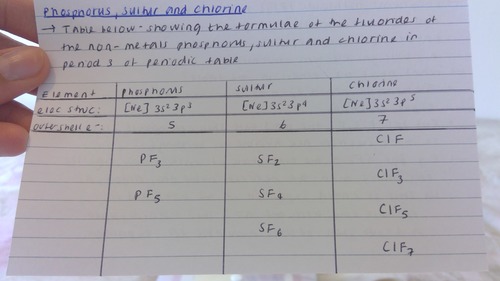 Phosphorus, sulfur and chlorine
→ Table below showing the formulae of the fluorides of
the non-metals phosphorus, sulfur and chlorine in
period 3 of periodic table
Element phosphorus sulfur chlorine
elec struc: [Ne] 3s² 3p³ [Ne] 3s² 3p⁴ [Ne] 3s² 3p⁵
outer shell e⁻: 5 6 7
ClF
PF₃ SF₂
ClF₃
PF₅ SF₄
ClF₅
SF₆
ClF₇